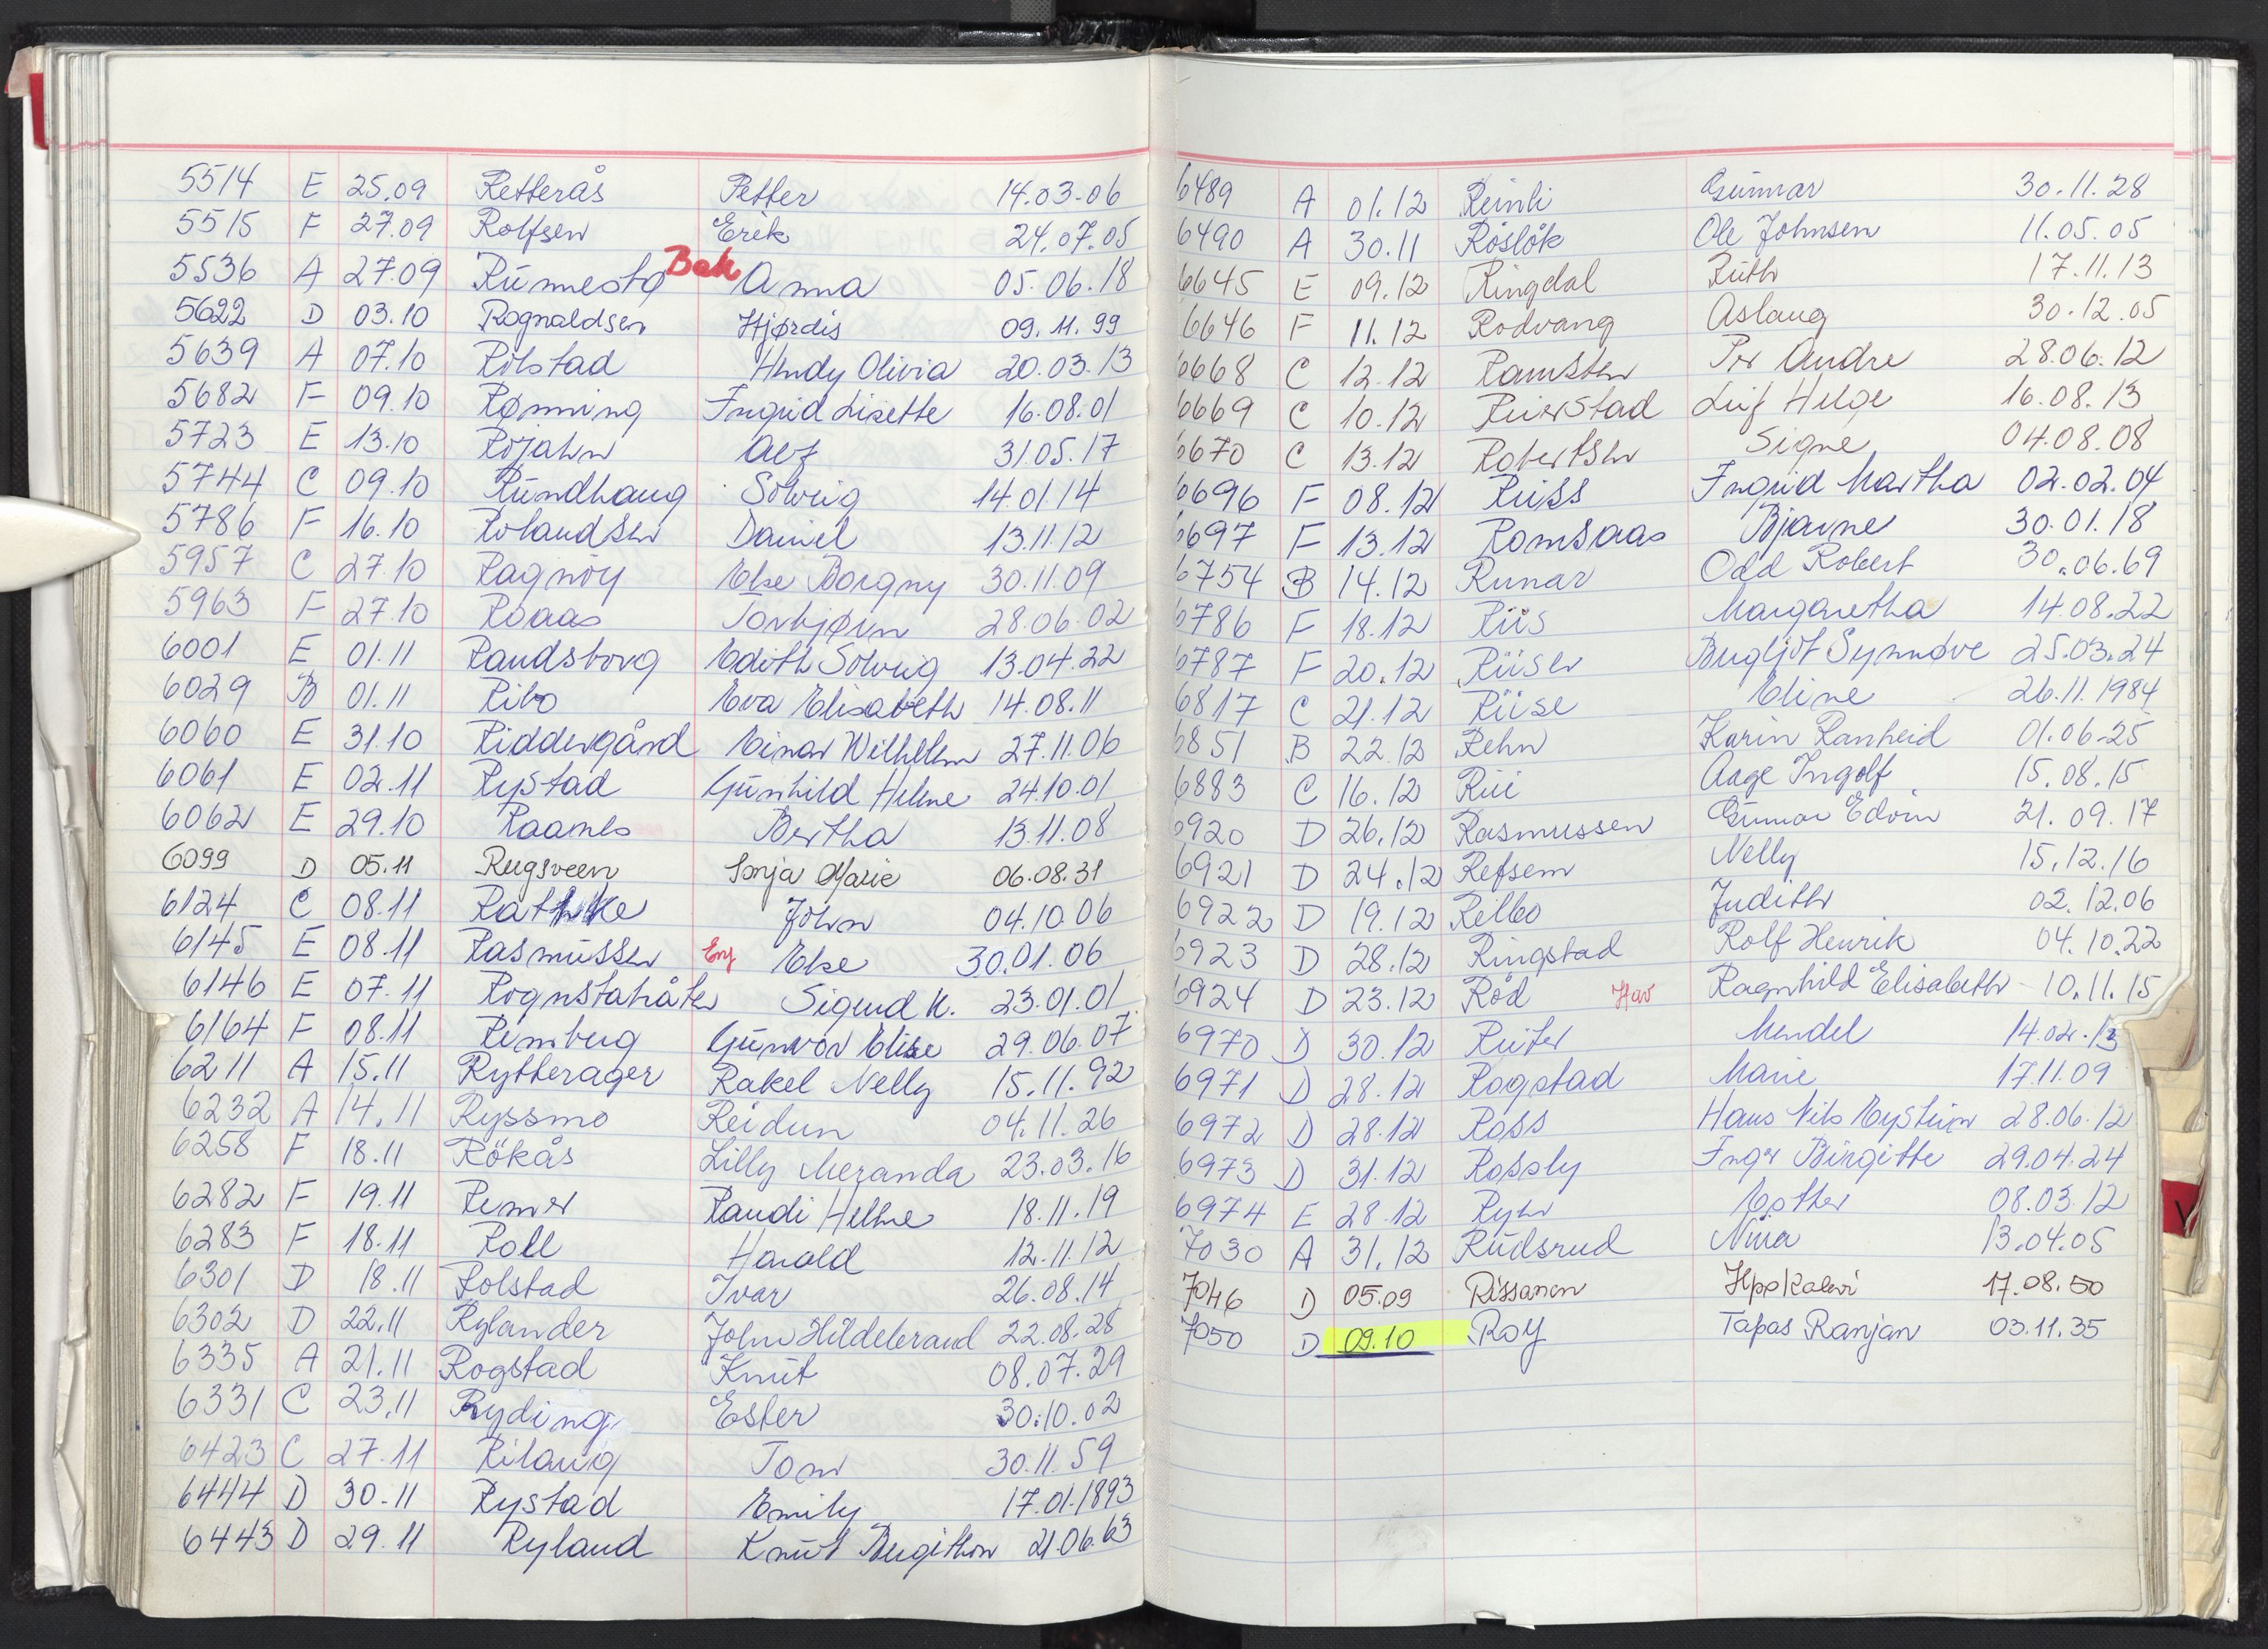 5514 E 25.09 Retterås Petter 14.03.06
5515 F 27.09 Rolfsen Erik 24.07.05
5536 A 27.09 Runnestø Bak Anna 05.06.18
5622 D 03.10 Rognaldsen Hjørdis 09.11.99
5639 A 07.10 Rolstad Hendy Olivia 20.03.13
5682 F 09.10 Rønning Ingrid Lisette 16.08.01
5723 E 13.10 Rojahn Alf 31.05.17
5744 C 09.10 Rundhaug Solveig 14.01.14
5786 F 16.10 Rolandsen Daniel 13.11.12
5957 C 27.10 Ragnøy Else Borgny 30.11.09
5963 F 27.10 Roaas Torbjørn 28.06.02
6001 E 01.11 Randsborg Edith Solveig 13.04.22
6029 B 01.11 Ribo Eva Elisabeth 14.08.11
6060 E 31.10 Riddergård Einar Wilhelm 27.11.06
6061 E 02.11 Rystad Gunhild Helene 24.10.01
6062 E 29.10 Raanes Bertha 13.11.08
6099 D 05.11 Rugsveen Sonja Marie 06.08.31
6124 C 08.11 Rathke John 04.10.06
6145 E 08.11 Rasmussen Eng Else 30.01.06
6146 E 07.11 Sigurd K. 23.01.01
6164 F 08.11 Remberg Gunvor Elise 29.06.07
6211 A 15.11 Rytterager Rakel Nelly 15.11.92
6232 A 14.11 Ryssmo Reidun 04.11.26
6258 F 18.11 Rökås Lilly Meranda 23.03.16
6282 F 19.11 Remer Randi Helene 18.11.19
6283 F 18.11 Roll Harald 12.11.12
6301 D 18.11 Rolstad Ivar 26.08.14
6302 D 22.11 Rylander John Hildebrand 22.08.28
6335 A 21.11 Rogstad Knut 08.07.29
6331 C 23.11 Ryding Ester 30.10.02
6423 C 27.11 Rilaug Tom 30.11.59
6444 D 30.11 Rystad Emily 17.01.1893
6443 D 29.11 Ryland Knut Bergithon 21.06.63
6489 A 01.12 Reinli Gunnar 30.11.28
6490 A 30.11 Röslök Ole Johnsen 11.05.05
6645 E 09.12 Ringdal Ruth 17.11.13
6646 F 11.12 Rodvang Aslaug 30.12.05
6668 C 12.12 Ramsten Per Andre 28.06.12
6669 C 10.12 Reierstad Leif Helge 16.08.13
6670 C 13.12 Robertsen Signe 04.08.08
6696 F 08.12 Reiss Ingrid Martha 02.02.04
6697 F 13.12 Romsaas Bjarne 30.01.18
6754 B 14.12 Runar Odd Robert 30.06.69
6786 F 18.12 Riis Margaretha 14.08.22
6787 F 20.12 Riiser Bergljot Synnøve 25.03.24
6817 C 21.12 Riise Eline 26.11.1984
6851 B 22.12 Rehn Karin Ranheid 01.06.25
6883 C 16.12 Rii Aage Ingolf 15.08.15
6920 D 26.12 Rasmussen Gunnar Edvin 21.09.17
6921 D 24.12 Refsem Nelly 15.12.16
6922 D 19.12 Relbo Judith 02.12.06
6923 D 28.12 Ringstad Rolf Henrik 04.10.22
6924 D 23.12 Röd Hav Ragnhild Elisabeth 10.11.15
6970 D 30.12 Reiter Mendel 14.02.13
6971 D 28.12 Rogstad Marie 17.11.09
6972 D 28.12 Ross Hans Nils Eystein 28.06.12
6973 D 31.12 Rossly Inger Birgitte 29.04.24
6974 E 28.12 Ryen Esther 08.03.12
7030 A 31.12 Rudsrud Nina 13.04.05
7046 D 05.09 Rissanen 17.08.50
7050 D 09.10 Roy Tapas Ranjan 03.11.35